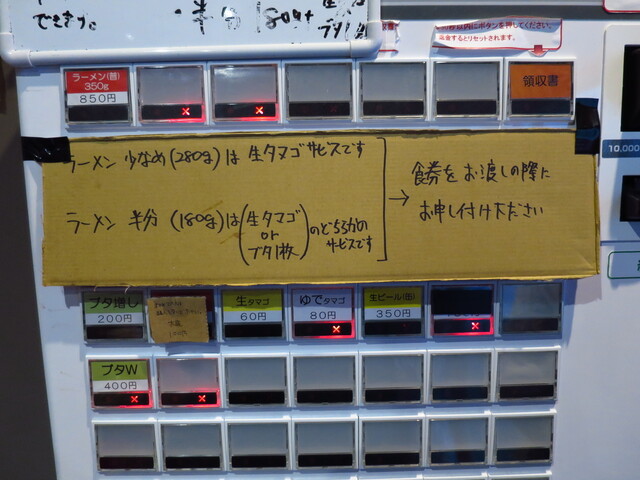 できます。
半分
180g
ボタンを押してください。
返金するとリセットされます。
ラーメン(普)
350g
850円
領収書
ラーメン 少なめ(280g)は 生タマゴサービスです
ラーメン 半分 (180g)は(生タマゴ or ブタ1枚)のどちらかのサービスです
→ 食券をお渡しの際に
お申し付け下さい
10,000
ブタ増し
200円
生タマゴ
60円
ゆでタマゴ
80円
生ビール(缶)
350円
ブタW
400円